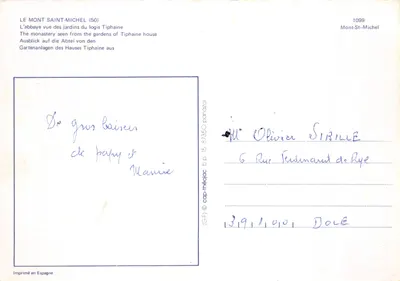 LE MONT SAINT-MICHEL (50)
L'abbaye vue des jardins du logis Tiphaine
The monastery seen from the gardens of Tiphaine house
Ausblick auf die Abtei von den
Gartenanlagen des Hauses Tiphaine aus
Mont St-Michel
De gros baisers
de papy et
Mamie
Mr Olivier SIBILLE
6 Rue Ferdinand de Rye
39100 DOLE
cap-théojac
Imprimé en Espagne